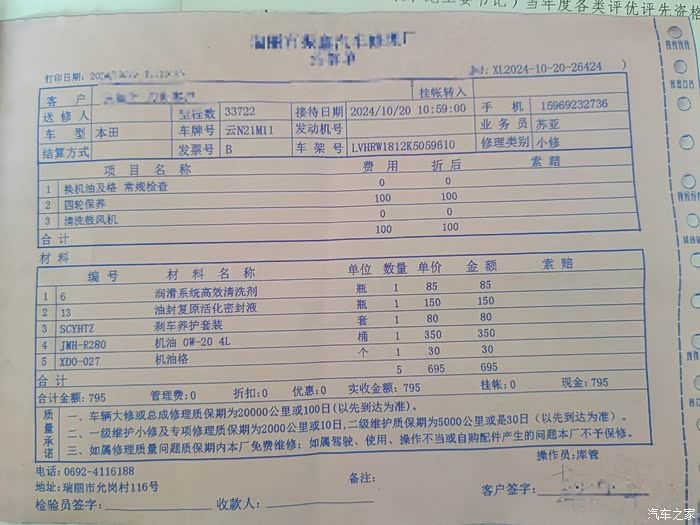 当年度各类评优评先资格
汽车修理厂
结算单
打印日期:
XL2024-10-20-26424 )
客 户 挂帐转入
送修人 里程数 33722 接待日期 2024/10/20 10:59:00 手 机 15969232736
车 型 本田 车牌号 云N21M11 发动机号 业务员 苏亚
结算方式 发票号 B 车架号 LVHRW1812K5059610 修理类别 小修
项目名称 费用 折后 索赔
1 换机油及格 常规检查 0 0
2 四轮保养 100 100
3 清洗鼓风机 0 0
合计 100 100
材料
编号 材料名称 单位 数量 单价 金额 索赔
1 6 润滑系统高效清洗剂 瓶 1 85 85
2 13 油封复原活化密封液 瓶 1 150 150
3 SCYHTZ 刹车养护套装 套 1 80 80
4 JMH-R280 机油 0W-20 4L 桶 1 350 350
5 XDO-027 机油格 个 1 30 30
合计 5 695 695
合计金额:795 管理费:0 折扣:0 优惠:0 实收金额:795 挂帐:0 现金:795
质量承诺
一、车辆大修或总成修理质保期为20000公里或100日(以先到达为准)。
二、一级维护小修及专项修理质保期为2000公里或10日,二级维护质保期为5000公里或是30日（以先到达为准）。
三、如属修理质量问题质保期内本厂免费维修；如属驾驶、使用、操作不当或自购配件产生的问题本厂不予保修。
操作员:库管
电话:0692-4116188
地址:瑞丽市允岗村116号 备注:
检验员签字: 收款人: 客户签字:
汽车之家